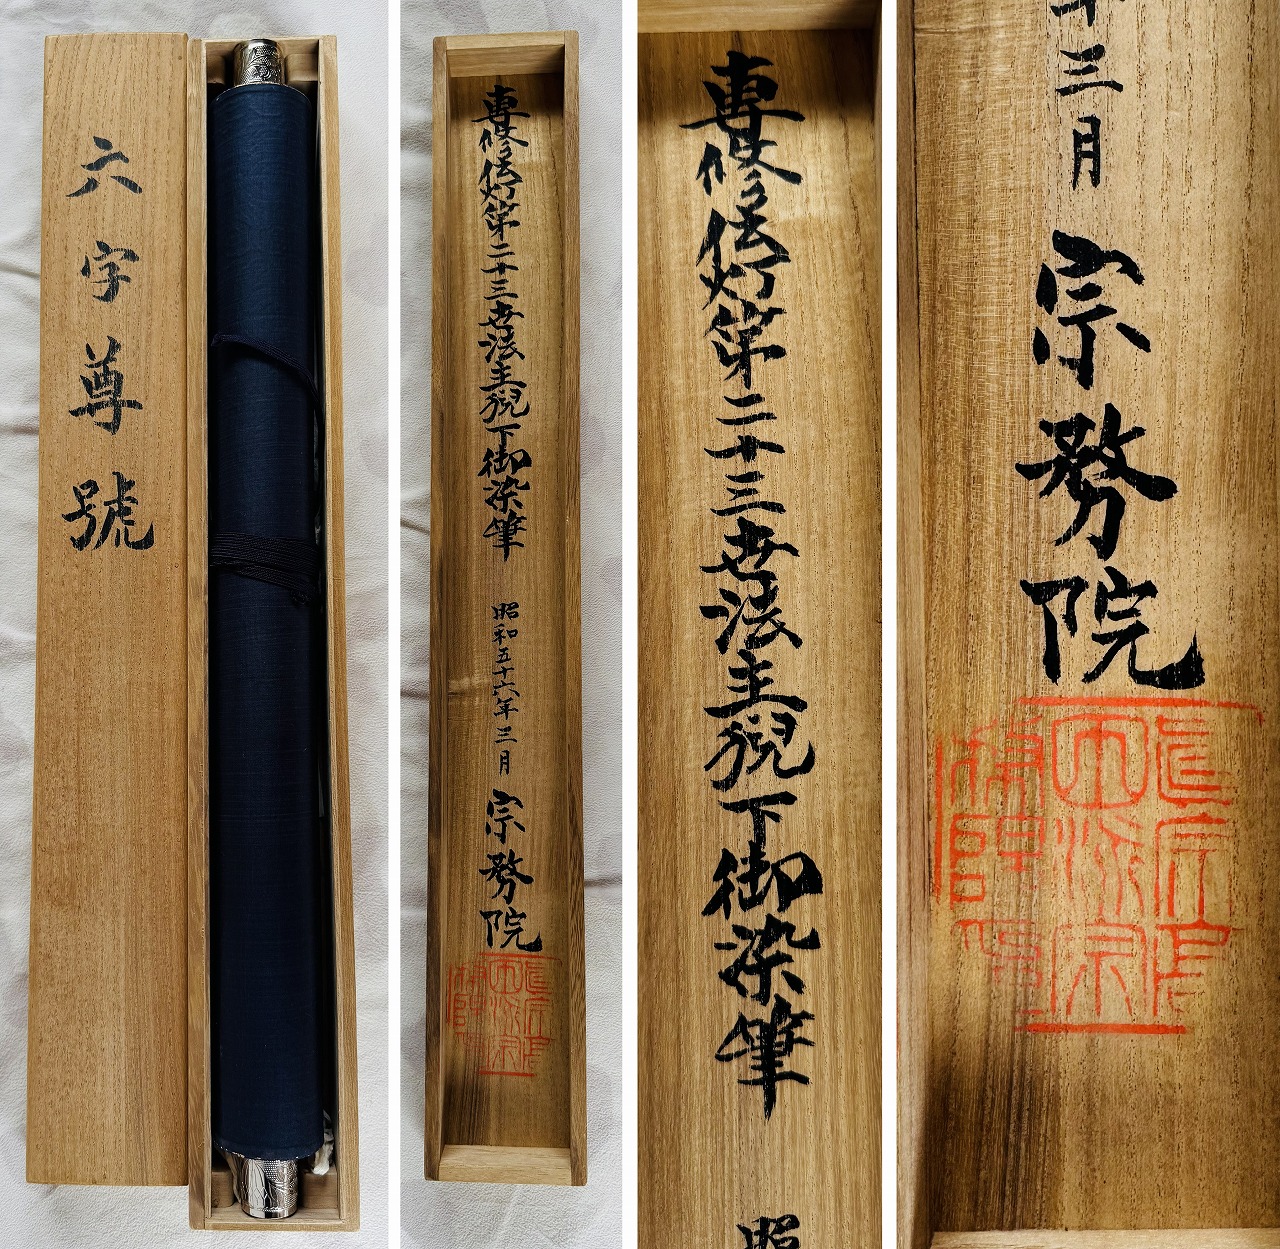 六字尊號
専修伝灯第二十三世法主猊下御染筆
昭和五十六年三月
宗務院
専修伝灯第二十三世法主猊下御染筆
昭
十三月
宗務院